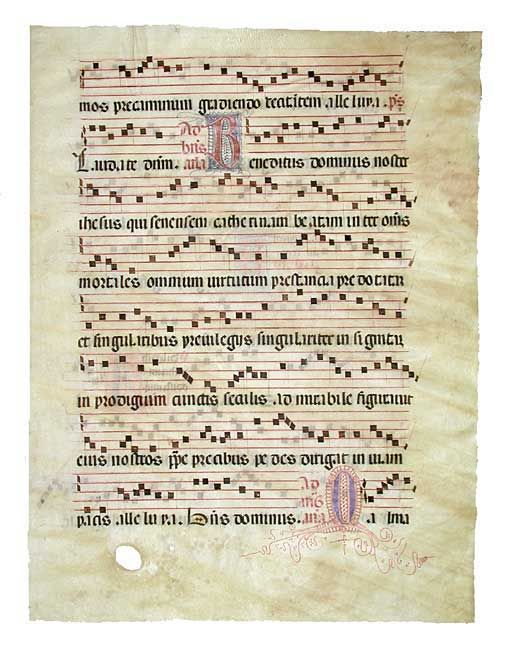 mos precaminum gradiendo recitátem. alle luya. p̃s
Laudate dñm. Ad bñs ana Beneditus dominus noster
ihesus qui senensem catherinam beatam inter oñis
mortales omnium uirtutum prestancia predotatā
et singularibus preuilegijs singulariter insignitā
in prodigium cunctis seculis. ad mirabile figurauit
eius nostros p̃pe precibus pedes dirigat in uiam
pacis alleluya. Dñs dominus. Ad ana alma